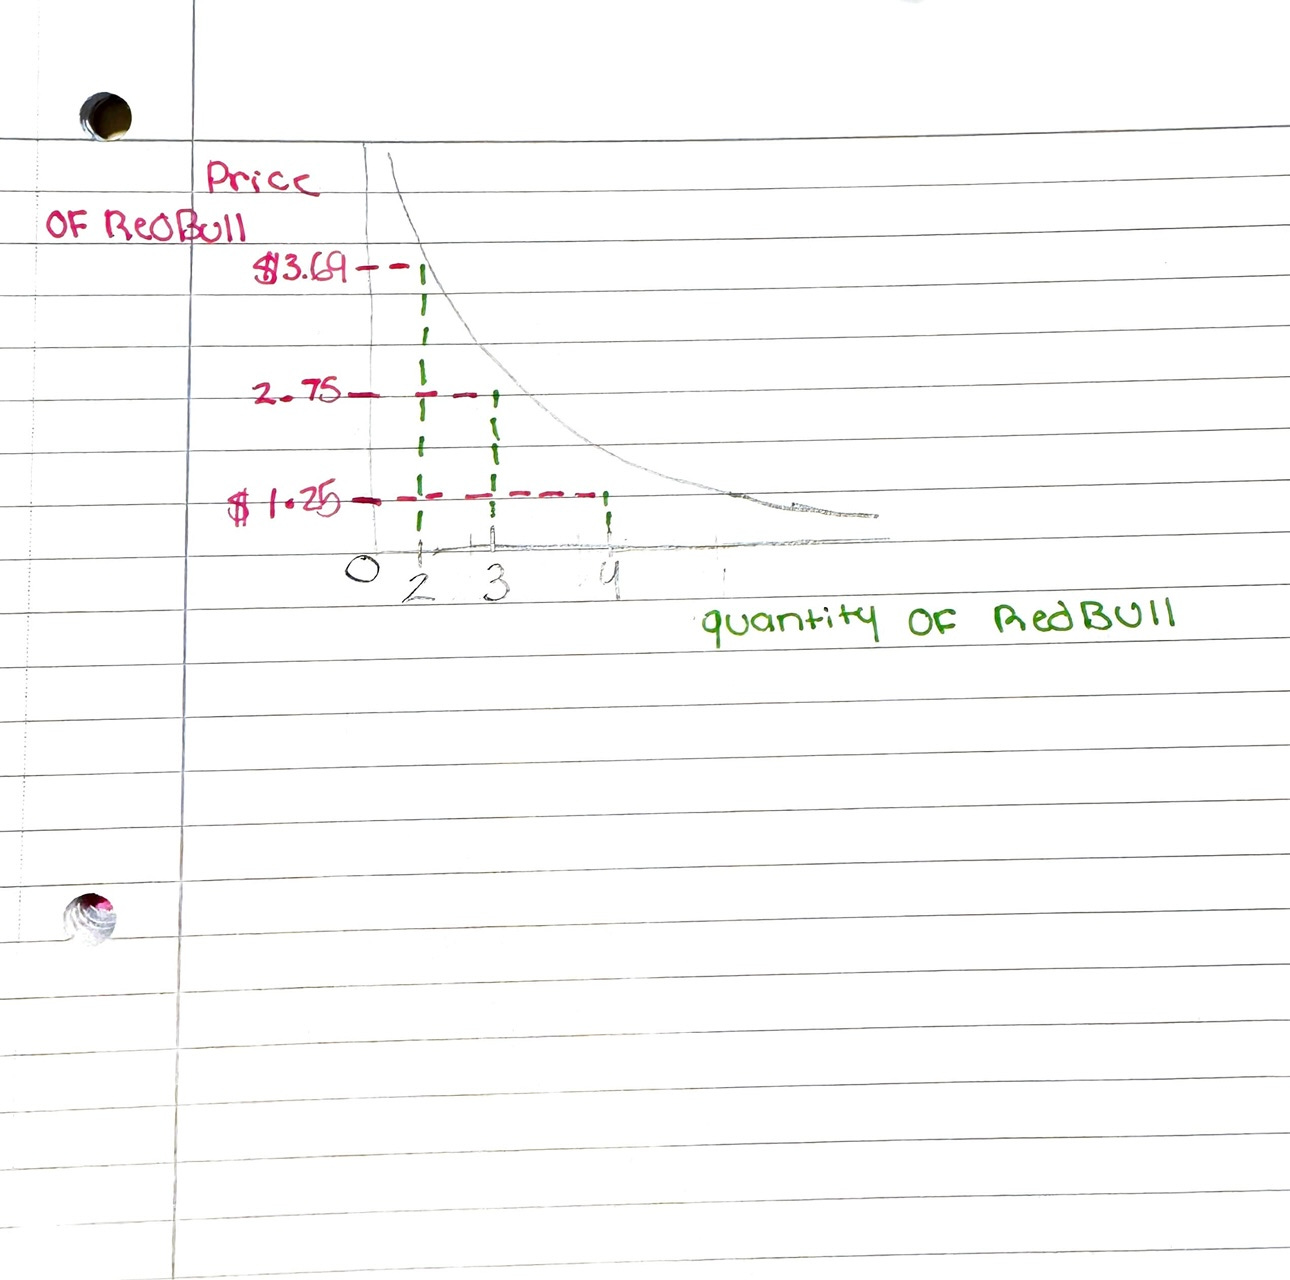 Price
OF RedBull
$3.69
2.75
$1.25
0 2 3 4
quantity OF RedBUll